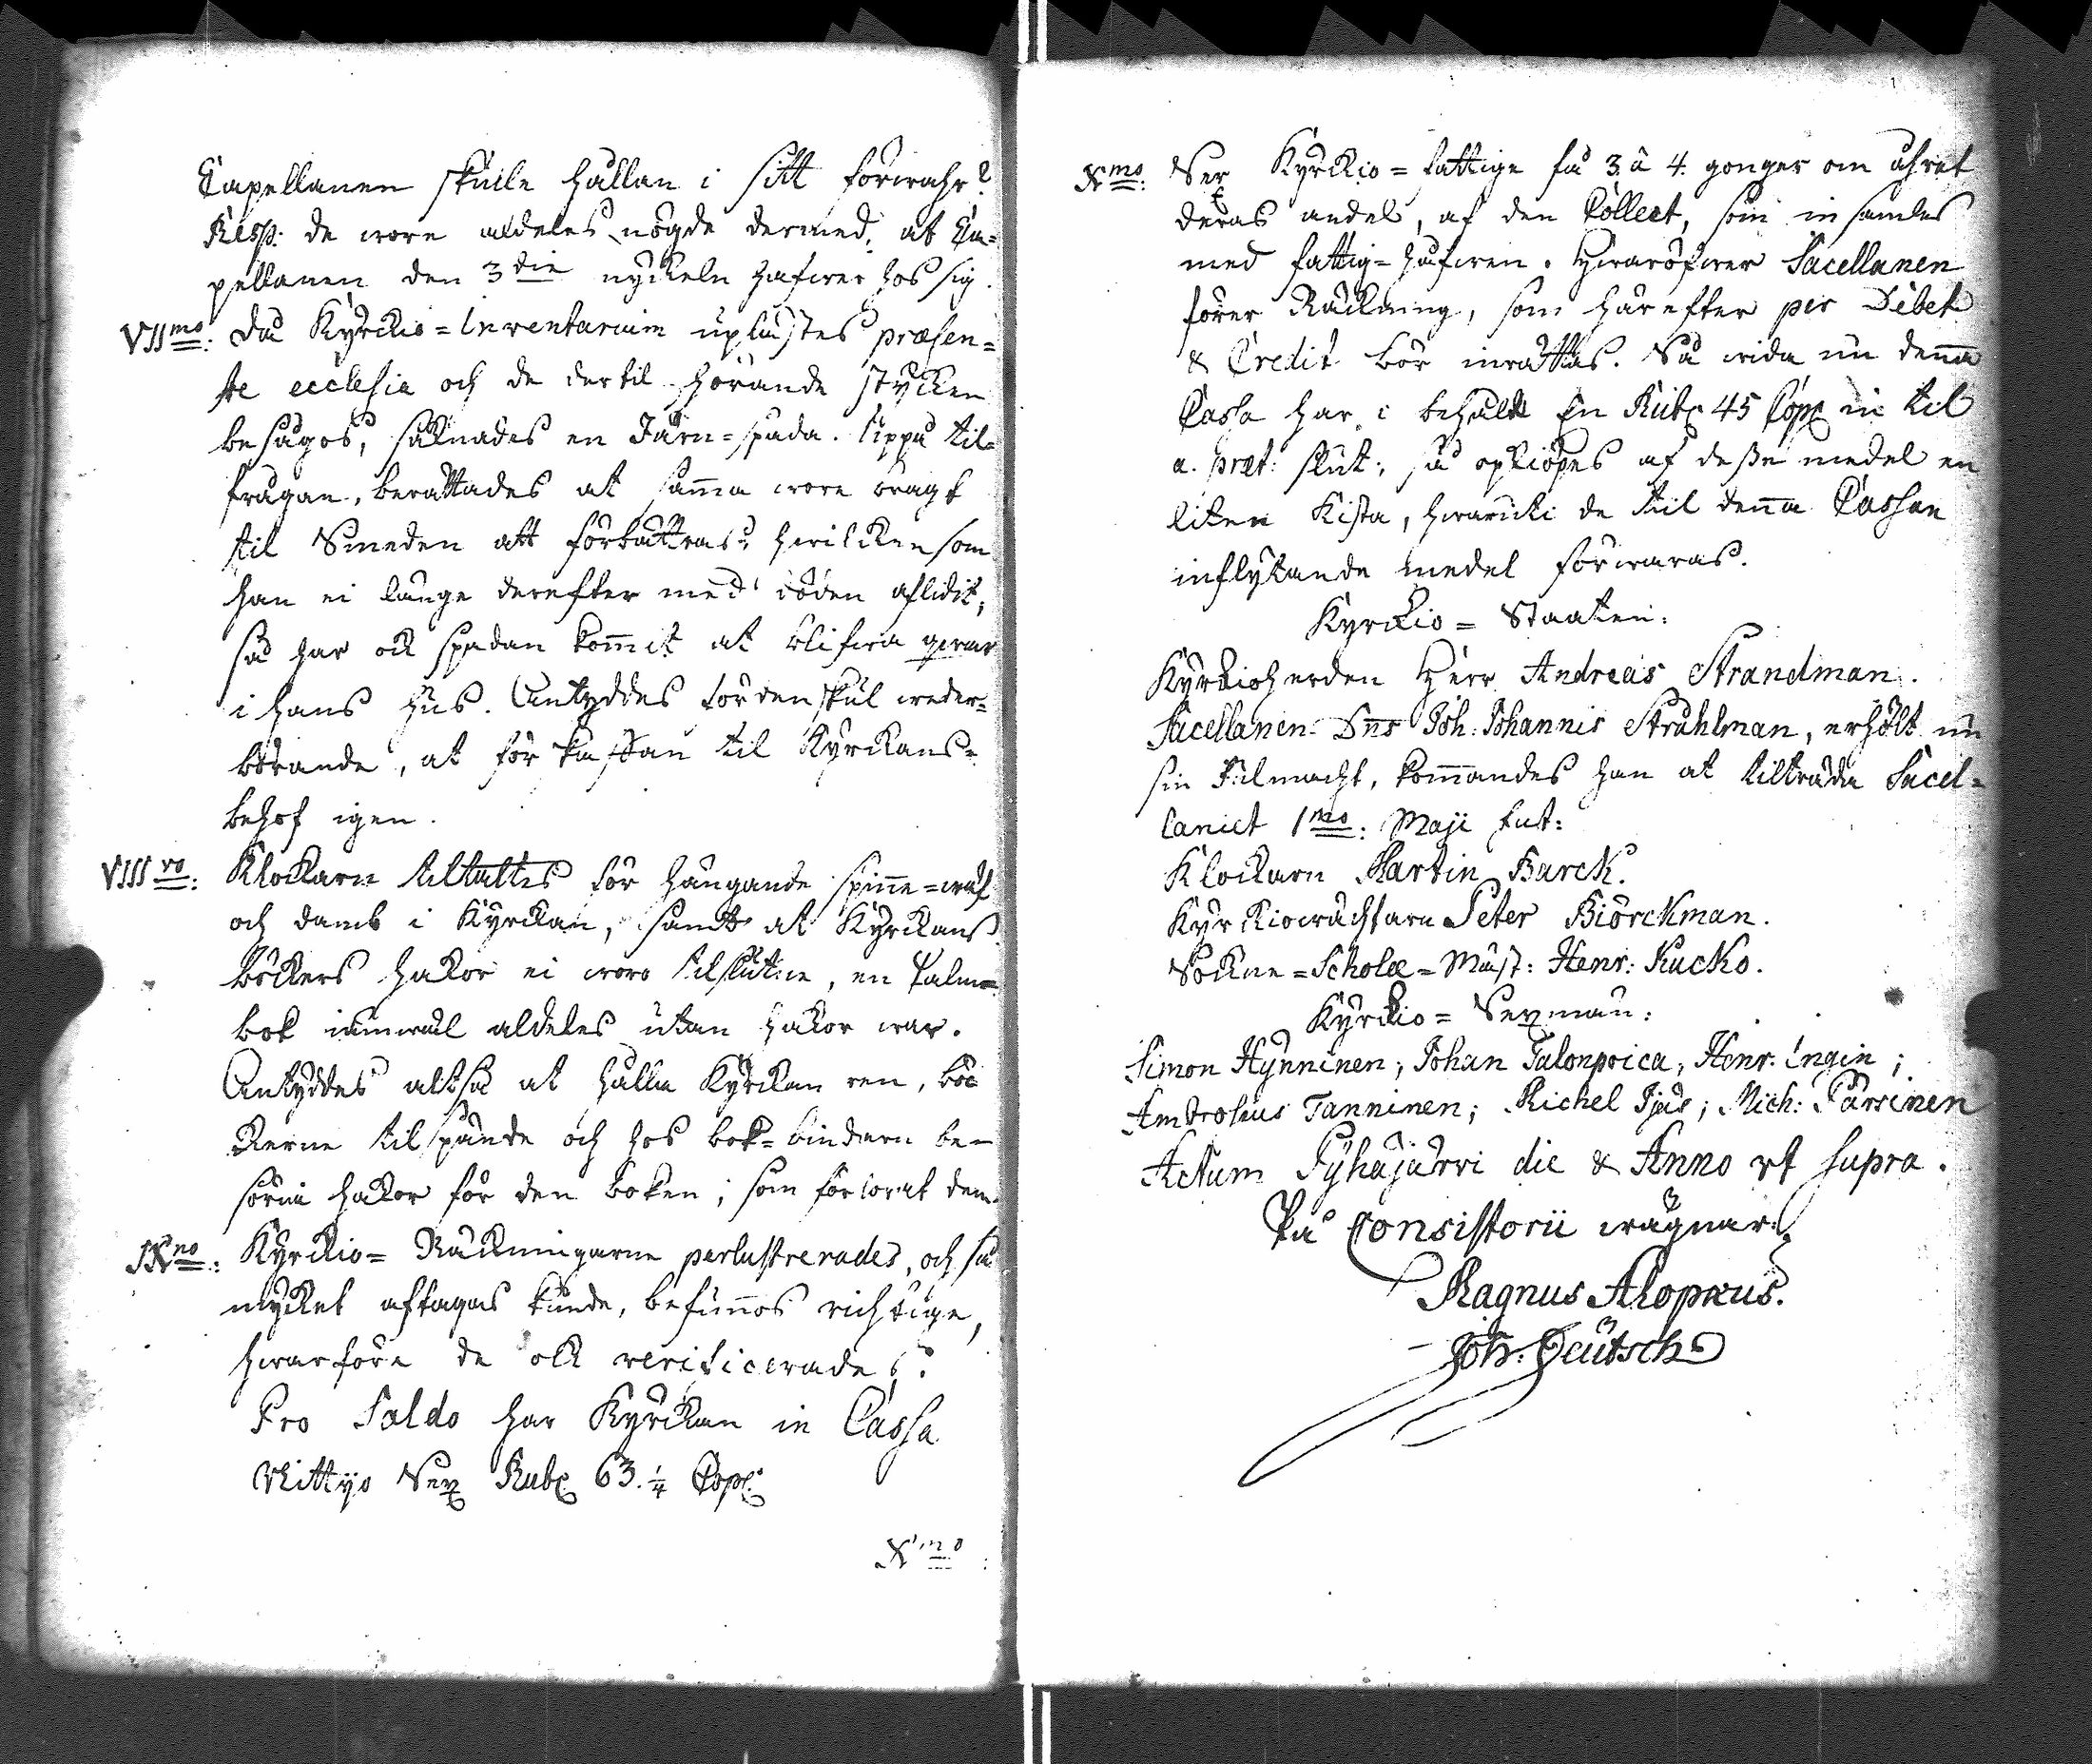 Capellanen skulle hållan i sitt förwahr?
Resp: de wore aldeles nögde dermed, at Ca=
pellanen den 3die nyckeln hafwer hos sig.
VIImo: Då Kyrckio=Inventarium uplästes præsen=
te ecclesia och de dertil hörande stycken
besågos, saknades en Järn=spada. Uppå til=
frågan, berättades at samma wore bragt
til Smeden att förbättras, hwilcken som
han ei länge derefter med döden aflidit,
så har ock spadan kommit at blifwa qwar
i hans hus. Antyddes fördenskul weder=
börande, at för skaffan til Kyrckans=
behof igen.
VIIIvo: Klockarn tiltaltes för hängande spinne=wäf
och damb i Kyrckan, samt at Kyrckans
böckers hakor ei woro tilslutne, en Psalm=
bok jämwäl aldeles utan hakor war.
Antyddes altså at hålla Kyrckan ren, böc
kerne tilspände och hos bok=bindarn be=
sörja hakor för den boken, som förlorat dem.
IXno: Kyrckio=Räckningarne perlustrerades, och så
mycket aftagas kunde, befunnos richtige,
hwarföre de ock verificerades.
Pro Saldo har Kyrckan in Cassa
Nittyo Sex Rub. 63 1/4 Cop:
Xmo:
Xmo: Sex Kyrckio=fattige få 3 à 4 gonger om åhret
deras andel, af den Collect, som insamles
med fattig=håfwen. Hwaröfwer Sacellanen
förer Räckning, som härefter per Debet
& Credit bör inrättas. Så wida nu denna
Cassa har i behåld En Rub. 45 Cop. in til
a. præt: slut, så opkiöpes af desse medel en
liten Kista, hwaruti de til denna Cassan
inflytande medel förwaras.
Kyrckio=Staaten:
Kyrckioherden Herr Andreas Strandman.
Sacellanen Dns Joh: Johannis Stråhlman, erhölt nu
sin Fulmacht, kommandes han at tilträda Sacel=
laniet 1mo: Maji fut:
Klockarn Martin Barck.
Kyrckiowachtarn Peter Biörckman.
Sockne=Scholæ=Mäst: Henr: Kucko.
Kyrckio=Sexmän:
Simon Hynninen; Johan Talonpoica; Henr. Ingin;
Ambrosius Tanninen; Michel Ijäs; Mich: Pärsinen
Actum Pyhäjärvi die & Anno ut supra.
På Consistorii wägnar.
Magnus Alopæus.
Joh: Deutsch